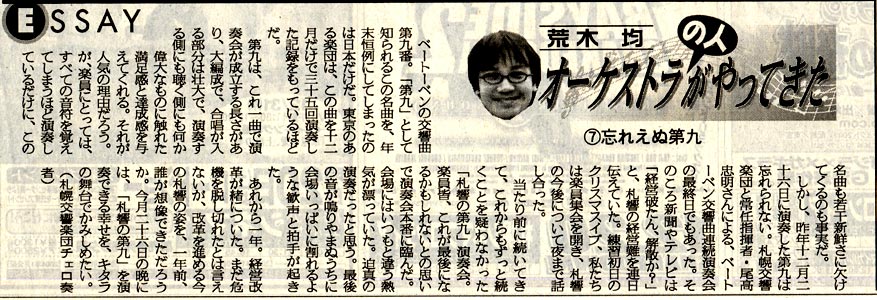 ESSAY
荒木 均
オーケストラの人がやってきた
⑦忘れえぬ第九
ベートーベンの交響曲
第九番。「第九」として
知られるこの名曲を、年
末恒例にしてしまったの
は日本だけだ。東京のあ
る楽団は、この曲を十二
月だけで三十五回演奏し
た記録をもっているほど
だ。
第九は、これ一曲で演
奏会が成立する長さがあ
り、大編成で、合唱が入
る部分は壮大で、演奏す
る側にも聴く側にも何か
偉大なものに触れた
満足感と達成感を与
えてくれる。それが
人気の理由だろう。
が、楽員にとっては、
すべての音符を覚え
てしまうほど演奏し
ているだけに、この
名曲も若干新鮮さに欠け
てくるのも事実だ。
しかし、昨年十二月二
十六日に演奏した第九は
忘れられない。札幌交響
楽団と常任指揮者・尾高
忠明さんによる、ベート
ーベン交響曲連続演奏会
の最終日でもあった。そ
のころ新聞やテレビは
「経営破たん、解散か?」
と、札響の経営難を連日
伝えていた。練習初日の
クリスマスイブ、私たち
は楽員集会を開き、札響
の今後について夜まで話
し合った。
当たり前に続いてき
て、これからもずっと続
くことを疑わなかった
「札響の第九」演奏会。
楽員皆、これが最後にな
るかもしれないとの思い
で演奏会本番に臨んだ。
会場にはいつもと違う熱
気が漂っていた。迫真の
演奏だったと思う。最後
の音が鳴りやまぬうちに
会場いっぱいに割れるよ
うな歓声と拍手が起き
た。
あれから一年。経営改
革が緒についた。まだ危
機を脱し切れたとは言え
ないが、改革を進める今
の札響の姿を、一年前、
誰が想像できただろう
か。今月二十六日の晩に
は、「札響の第九」を演
奏できる幸せを、キタラ
の舞台でかみしめたい。
（札幌交響楽団チェロ奏
者）